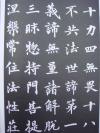 十力四無畏十八
不共法世諦第一
義諦無
三昧惣持門菩提
涅槃常住法性莊